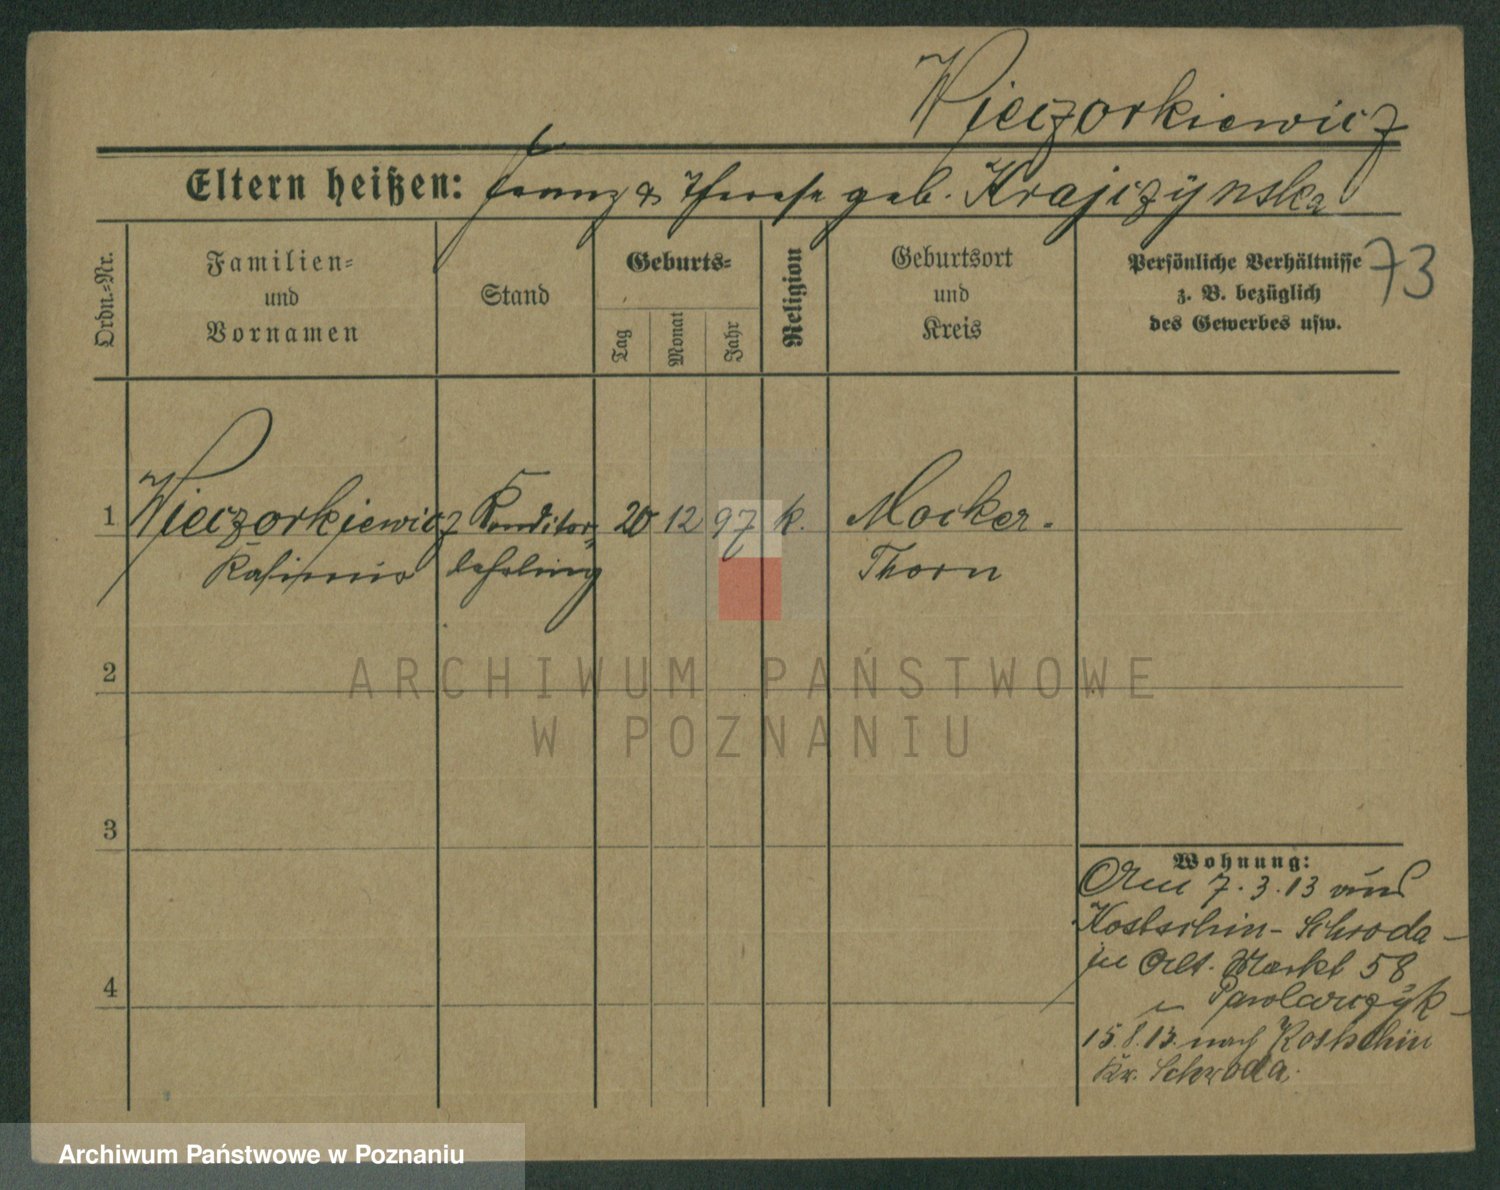 Wieczorkiewicz
Eltern heißen: Franz & Therese geb. Krajczÿnska
Ordn.-Nr.
Familien-
und
Vornamen
Stand
Geburts-
Tag
Monat
Jahr
Religion
Geburtsort
und
Kreis
Persönliche Verhältnisse
z. B. bezüglich
des Gewerbes usw.
73
1 Wieczorkiewicz Konditor- 20 12 97 k. Mocker.
Kasimir lehrling Thorn
2
3
4
Wohnung:
7.3.13 aus
Kostschin-Schroda
in Alt. Markt 58
Pawlarczÿk
15.8.13. nach Kostschin
Kr. Schroda.
ARCHIWUM PAŃSTWOWE
W POZNANIU
Archiwum Państwowe w Poznaniu